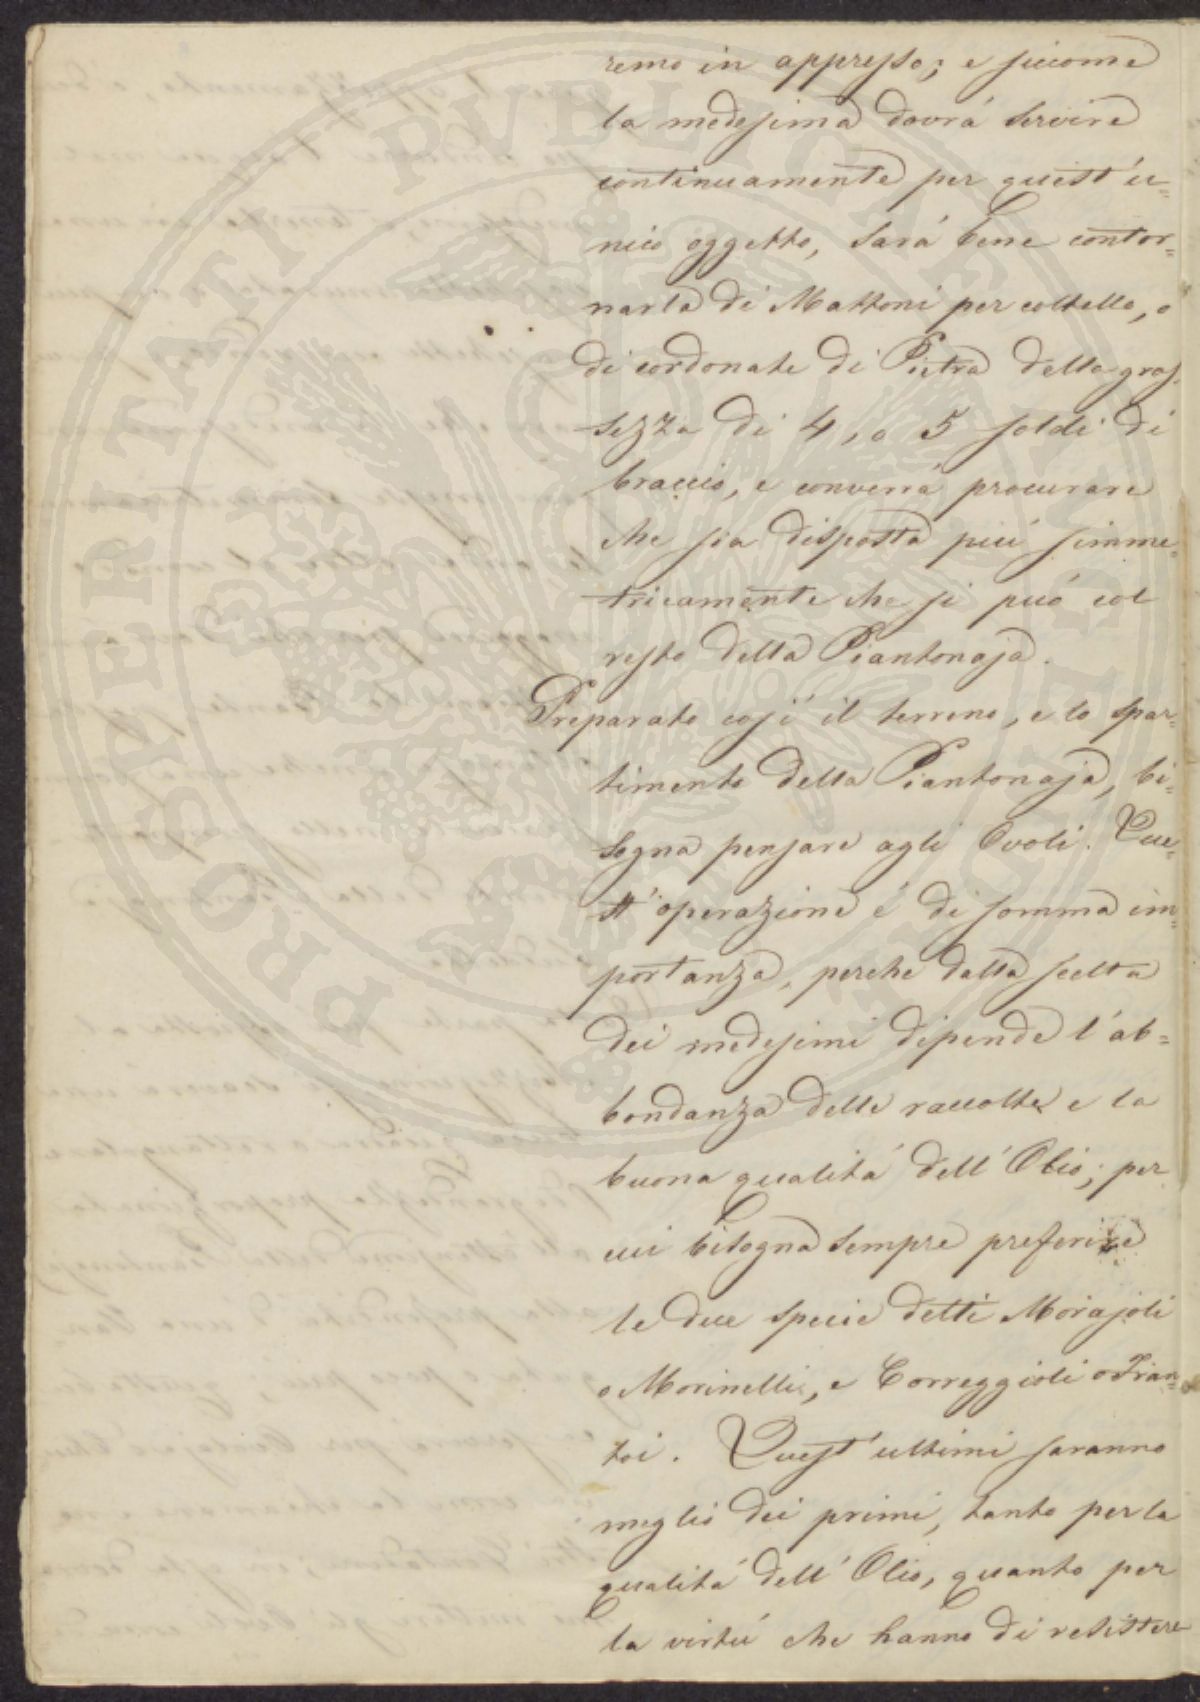 remo in appresso; e siccome
la medesima dovrá servire
continuamente per quest'u=
nico oggetto, sará bene contor=
narla di Mattoni per coltello, o
di cordonate di Pietra della gros=
sezza di 4, o 5 soldi di
braccio, e converrá procurare
che sia disposta piú simme=
tricamente che si può col
resto della Piantonaja.
Preparato cosí il terreno, e lo spar=
timento della Piantonaja, bi=
sogna pensare agli Ovoli. Que=
st'operazione é di somma im=
portanza, perche dalla scelta
dei medesimi dipende l'ab=
bondanza delle raccolte e la
buona qualitá dell'Olio; per
cui bisogna sempre preferire
le due specie detti Morajoli
o Morinelli, e Correggioli o Fran=
toi. Quest'ultimi saranno
meglio dei primi, tanto per la
qualitá dell'Olio, quanto per
la virtú che hanno di resistere
PROSPERITATI PVBLICAE AVGENDAE